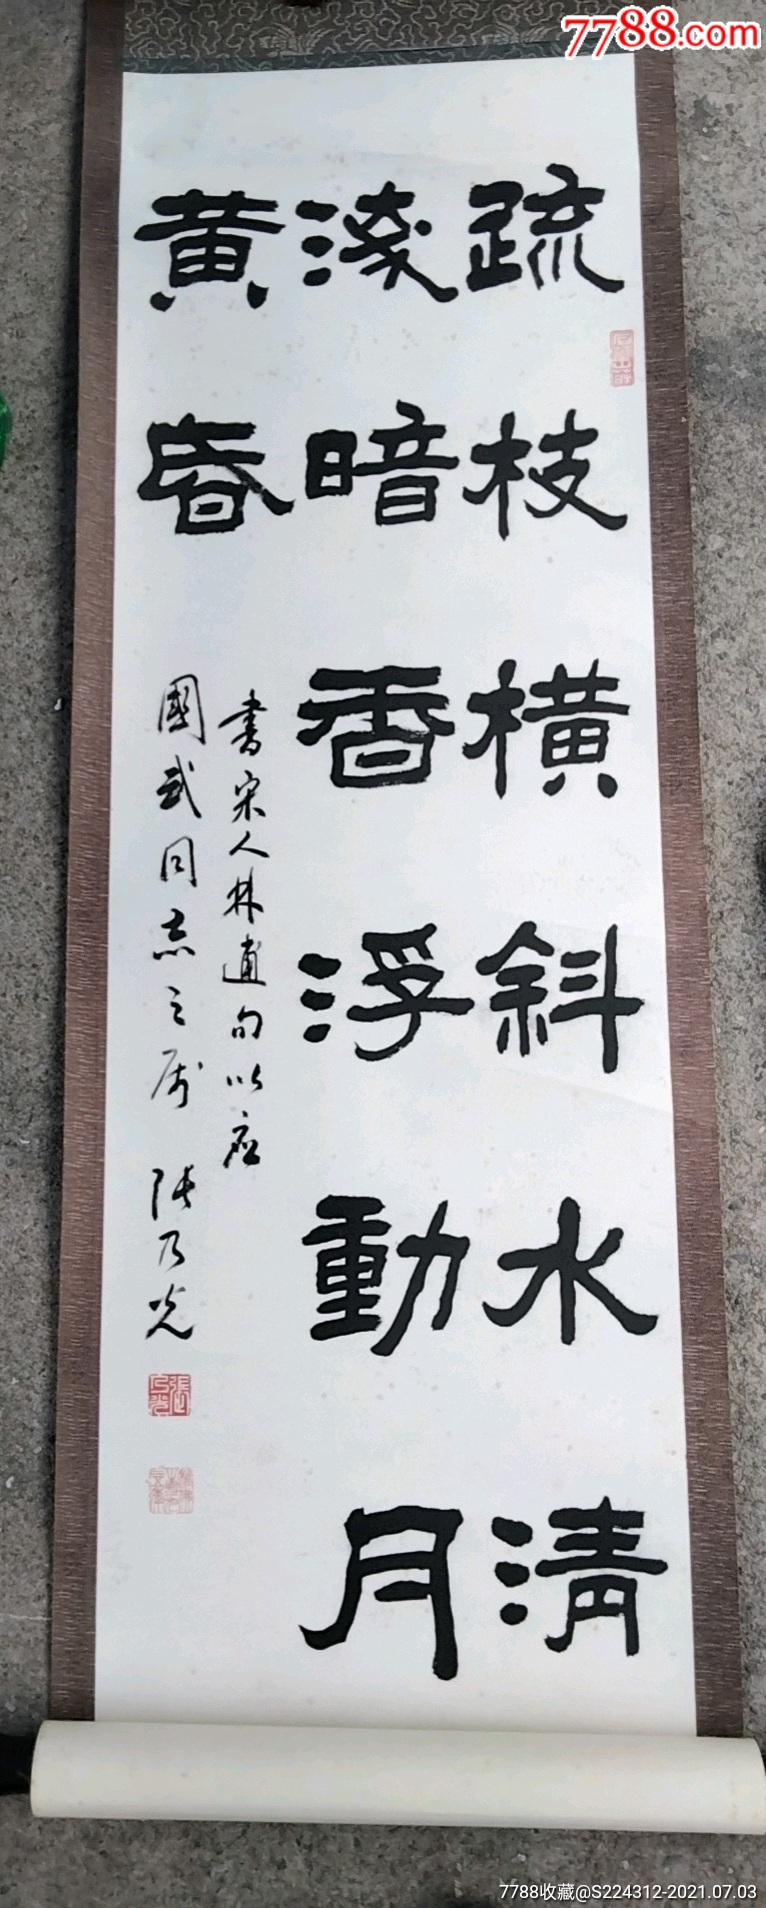 7788.com
疏枝横斜水清
浅暗香浮動月
黄昏
書宋人林逋句以应
國武同志之属 张乃光
7788收藏@S224312-2021.07.03